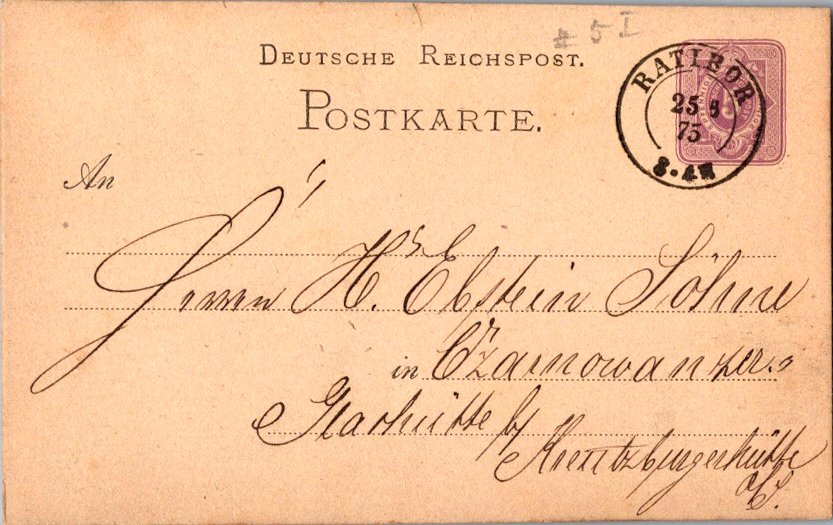 # 5 I
DEUTSCHE REICHSPOST.
POSTKARTE.
RATIBOR
25 8
75
8-9N
An
Herren H. Ebstein Söhne
in Czarnowanzer
Glashütte b/
Kreutzburgerhütte
O/S.